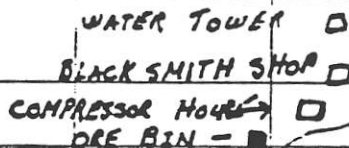 WATER TOWER
BLACK SMITH SHOP
COMPRESSOR HOUSE
ORE BIN -